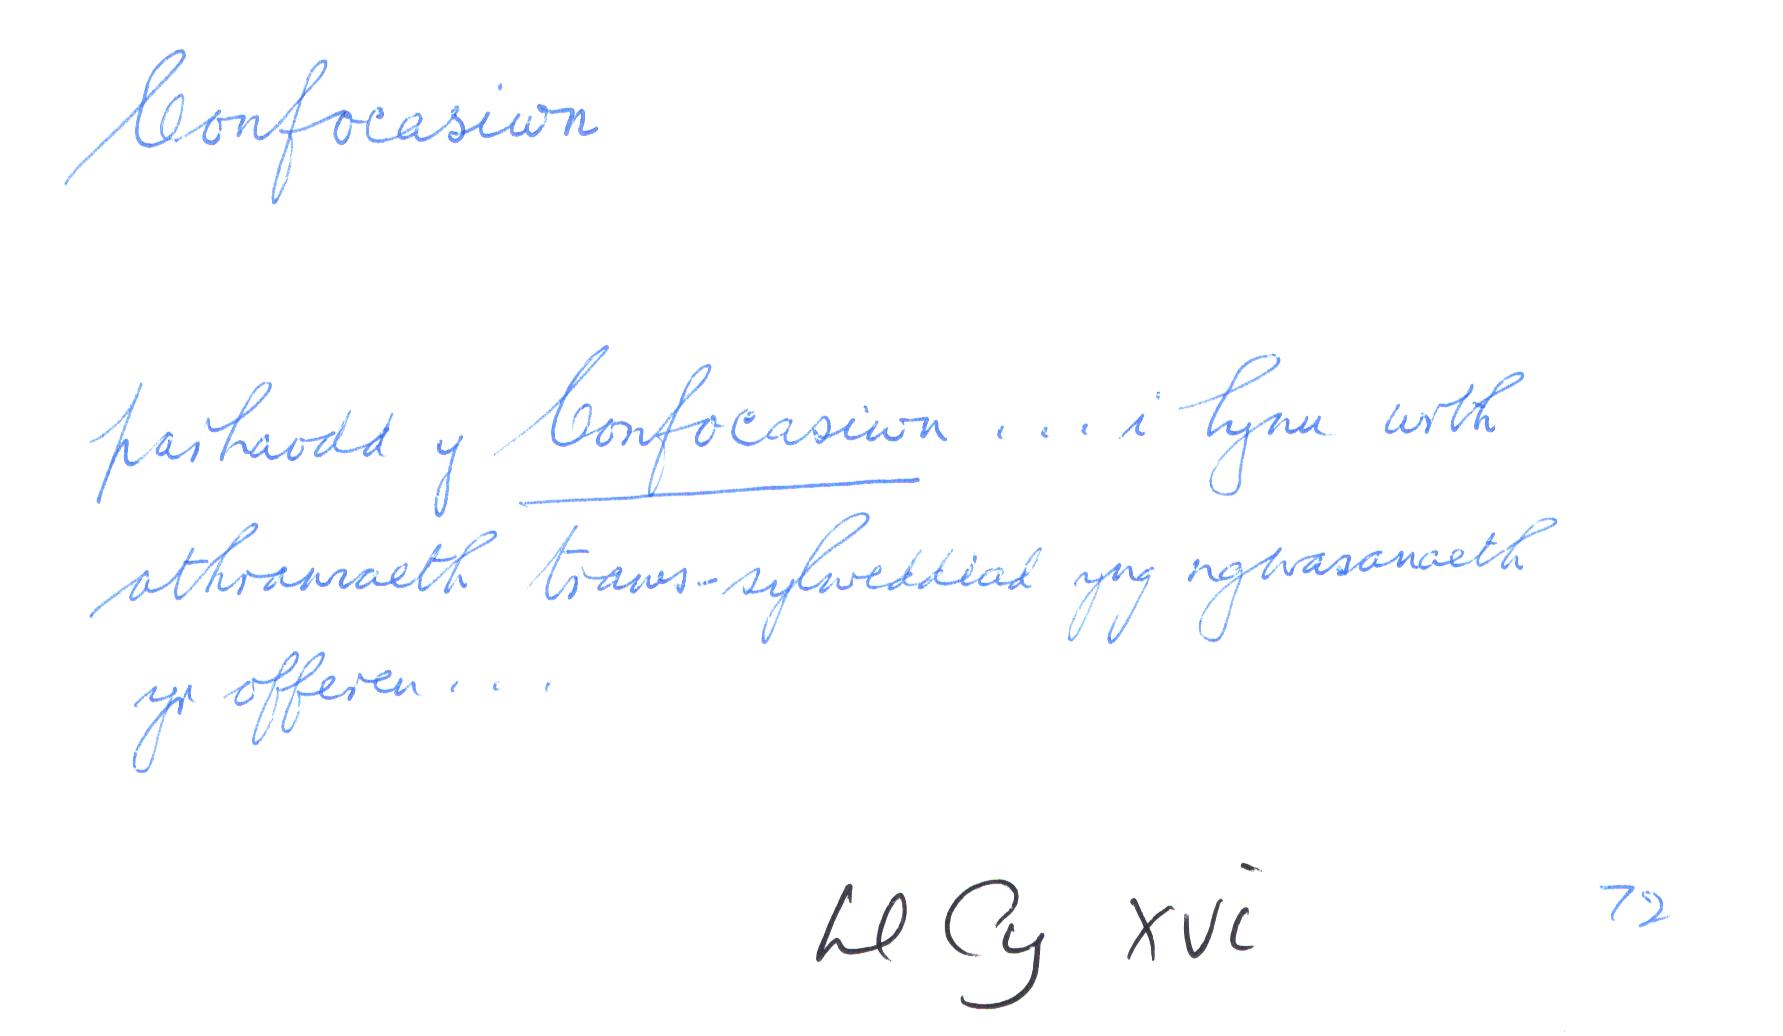 Confocasiwn
parhaodd y Confocasiwn ... i lynu wrth
athrawiaeth traws-sylweddiad yng ngwasanaeth
yr offeren ...
Ll Cy XVI 72